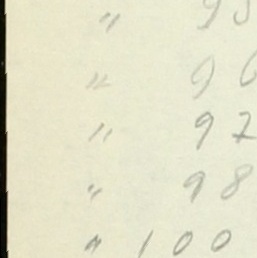 " 95
" 96
" 97
" 98
" 100